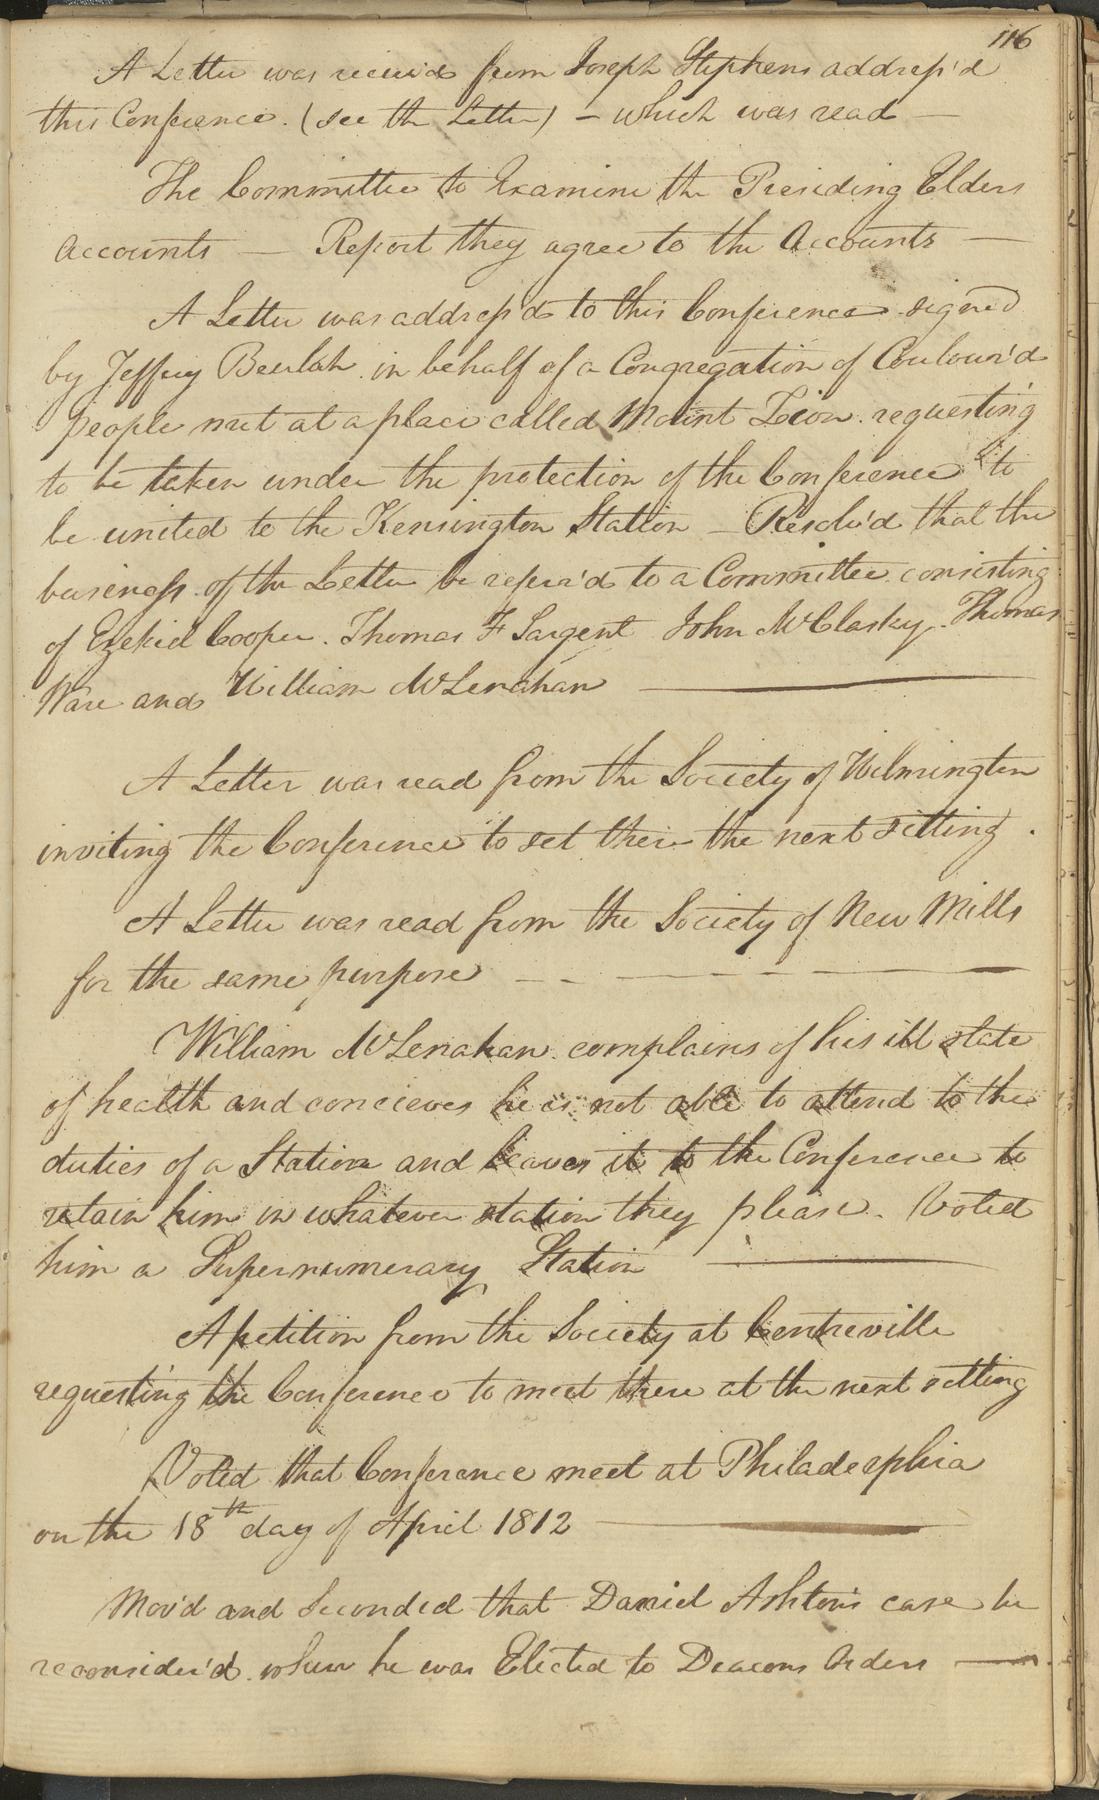 116
A Letter was receiv'd from Joseph Stephens address'd
this Conference. (see the Letter) – which was read —
The Committee to Examine the Presiding Elders
Accounts — Report they agree to the Accounts —
A Letter was address'd to this Conference signed
by Jeffrey Beulah in behalf of a Congregation of Coulour'd
people met at a place called Mount Zion requesting
to be taken under the protection of the Conference to
be united to the Kensington Station – Resolv'd that the
business of the Letter be refer'd to a Committee consisting
of Ezekiel Cooper. Thomas F Sargent John McClasky. Thomas
Ware and William McLenahan —
A Letter was read from the Society of Wilmington
inviting the Conference to set there the next sitting.
A Letter was read from the Society of New Mills
for the same purpose — — —
William McLenahan complains of his ill state
of health and concieves he is not able to attend to the
duties of a Station and leaves it to the Conference to
retain him in whatever station they please. Voted
him a Supernumerary Station —
A petition from the Society at Centreville
requesting the Conference to meet there at the next setting
Voted that Conference meet at Philadelphia
on the 18th day of April 1812 —
Mov'd and Seconded that Daniel Ashton's case be
reconsider'd when he was Elected to Deacons Orders —